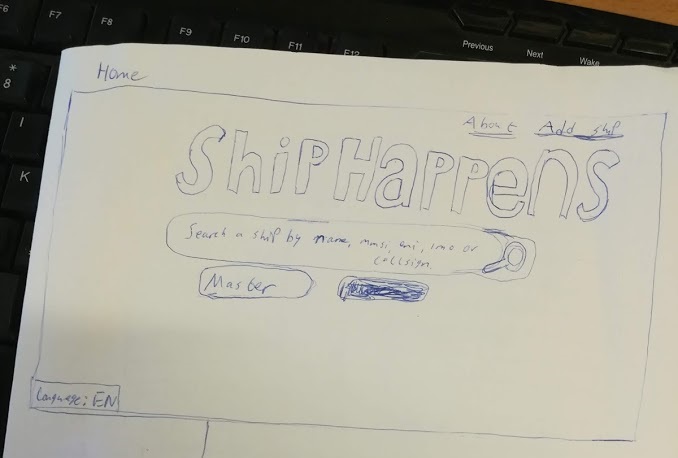 F6 F7 F8 F9 F10 F11 F12
Previous Next Wake
*
8
I
K
Home
About Add ship
ShipHappens
Search a ship by name, mmsi, eni, imo or
callsign
Master
Language: EN